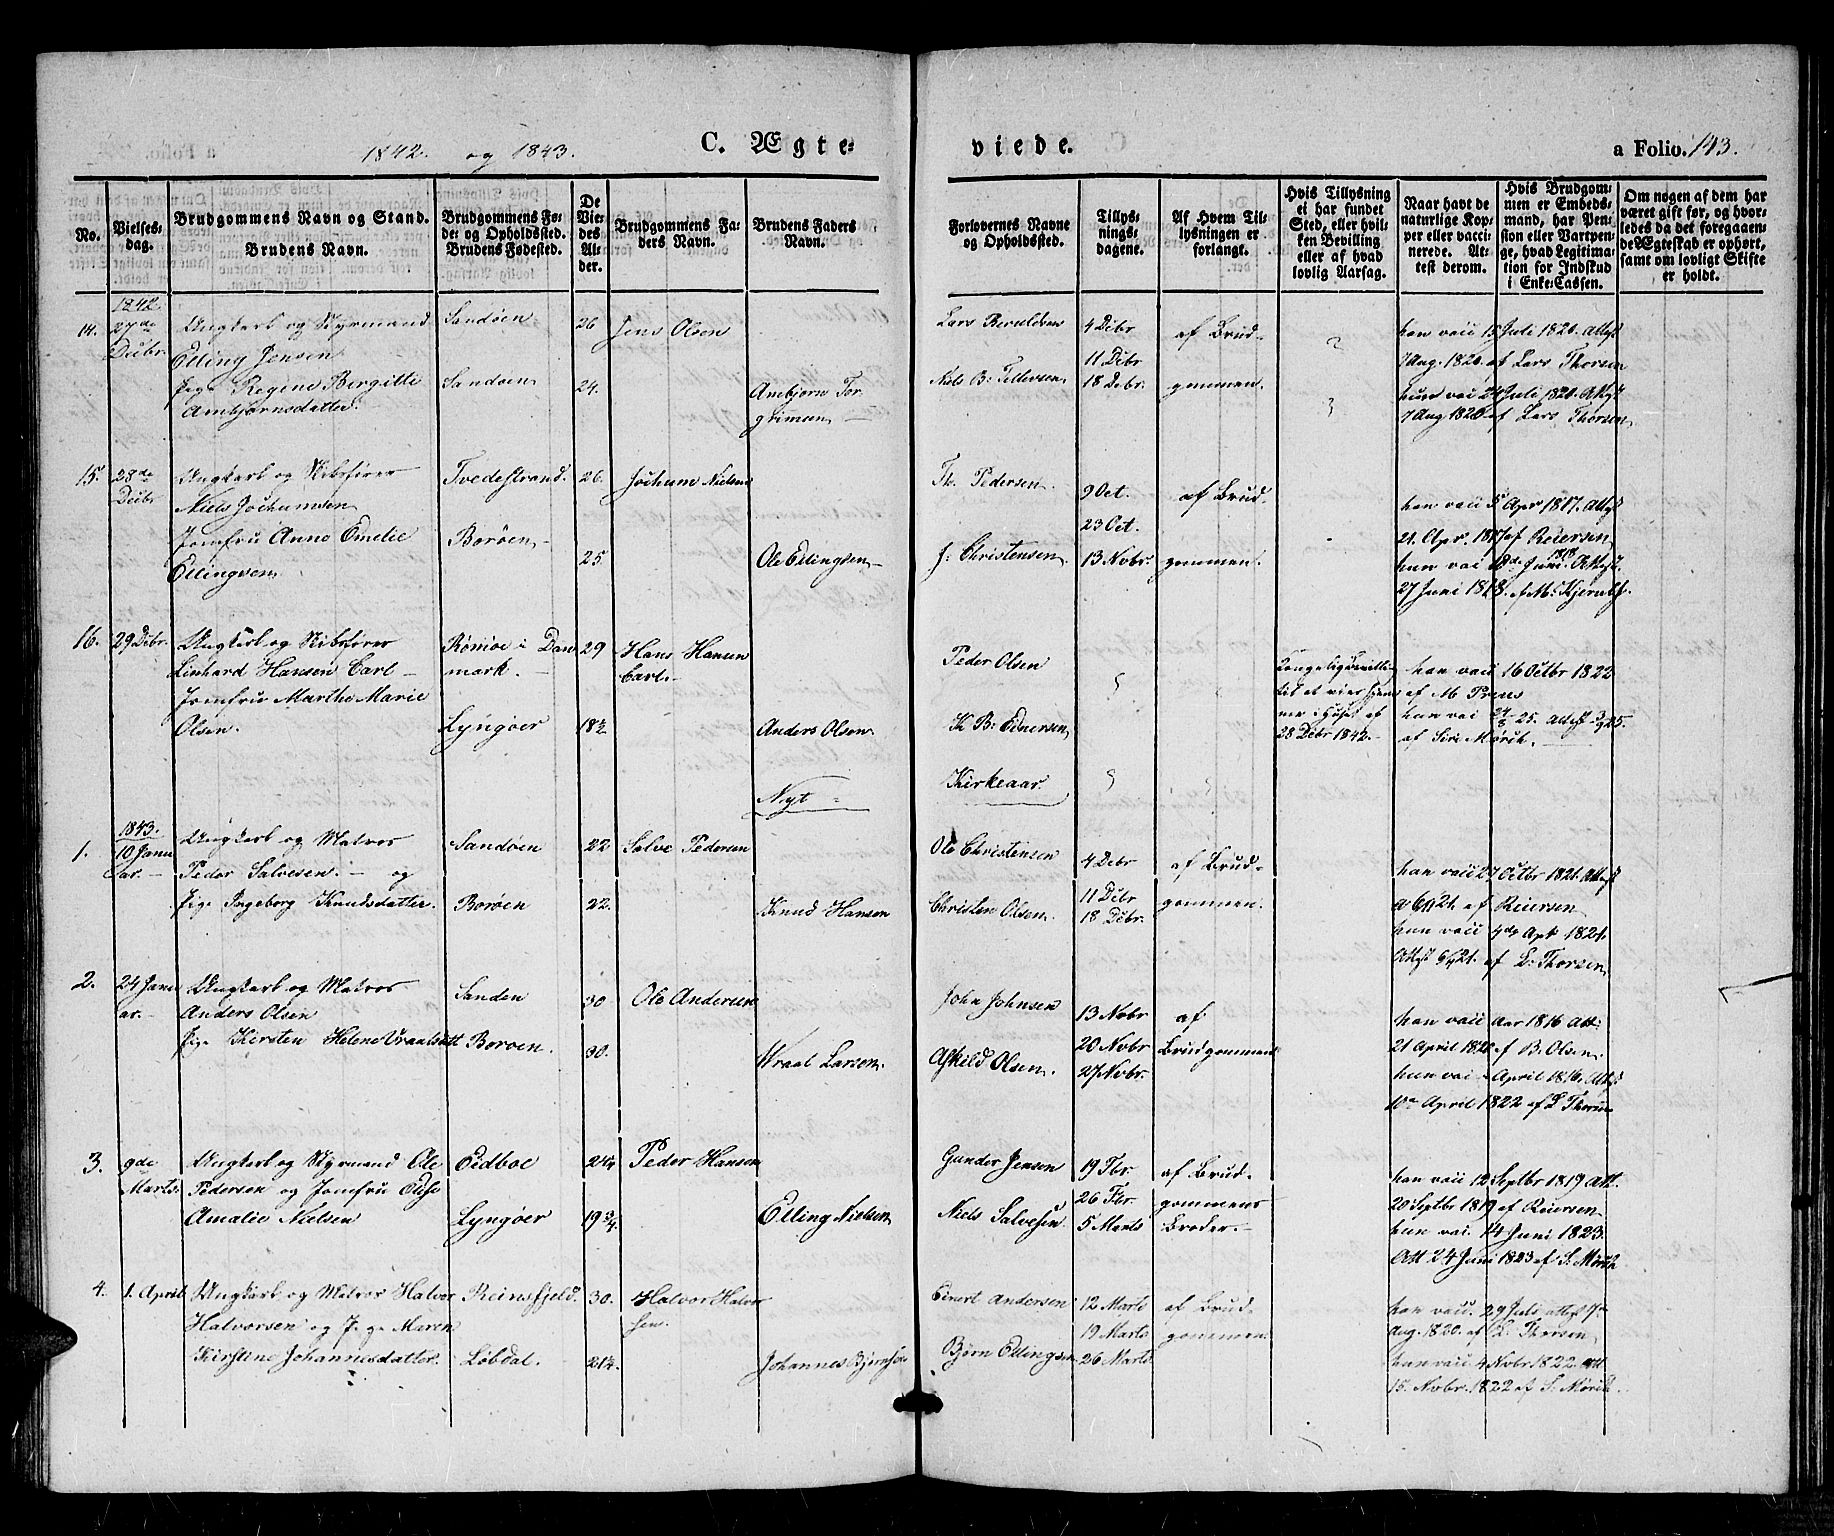 1842. og 1843. C. Ægte-
viede. a Folio. 143.
No.
Vielses-
dag.
Brudgommens Navn og Stand.
Brudens Navn.
Brudgommens Fø-
de- og Opholdssted.
Brudens Fødested.
De
Vie-
des
Al-
der.
Brudgommens Fa-
ders Navn.
Brudens Faders
Navn.
Forlovernes Navne
og Opholdssted.
Tillys-
nings-
dagene.
Af Hvem Til-
lysningen er
forlangt.
Hvis Tillysning
ei har fundet
Sted, eller hvil-
ken Bevilling
eller af hvad
lovlig Aarsag.
Naar havt de
naturlige Kop-
per eller vacci-
nerede. At-
test derom.
Hvis Brudgom-
men er Embeds-
mand, har Pen-
sion eller Vartpen-
ge, hvad Legitima-
tion for Indskud
i Enke-Cassen.
Om nogen af dem har
været gift før, og hvor-
ledes da det foregaaen-
de Ægteskab er ophørt,
samt om lovligt Skifte
er holdt.
1842
14. 27de Decbr
Ungkarl og Styrmand
Elling Jensen
Pige Regine Birgitte
Ambjørnsdatter.
Sandøen
Sandøen
26
24.
Jens Olsen
Anebjørn Tor-
grimsen
Lars Beruldsen
Niels B: Tellevsen
4 Debr
11 Debr
18 Debr.
af Brud-
gommen.
han vacc 15 Juli 1820. Attest
7 Aug. 1820 af Lars Thorsen
hun vac 24 Juli 1820. Attest
7 Aug 1820 af Lars Thorsen
15. 28de Decbr
Ungkarl og Skibsfører
Niels Jochumsen
Jomfru Anne Emelie
Ellingsen
Tvedestrand.
Borøen
26.
25.
Jochum Nielsen
Ole Ellingsen
Th. Pedersen.
J: Christensen
9 Oct.
23 Oct.
13 Novbr.
af Brud-
gommen.
han vacc 5 Apr 1817. Attest
21. Apr. 1817 af Reiersen
hun vac 18de Juni 1818 Attest
27 Juni 1818. af M: Kjerulf.
16. 29 Debr.
Ungkarl og Skibsfører
Linhard Hansen Carl
Jomfru Marthe Marie
Olsen.
Rømøe i Dan-
mark.
Lyngøer
29
18½
Hans Hansen
Carl.
Anders Olsen.
Peder Olsen
K B: Ednersen
Kongelig Bevilling
til at vies hjem-
me i Huset af
28 Debr 1842.
han vacc 16 Octbr 1822
af M Preus
hun vac 24/8 25. attest 3/9 25.
af Sire Mørch.
Nyt Kirkeaar.
1843.
1. 10 Janu-
ar.
Ungkarl og Matros
Peder Salvesen. og
Pige Ingeborg Knudsdatter.
Sandøen
Borøen
22
22.
Salve Pedersen
Knud Hansen
Ole Christensen
Christen Olsen.
4 Debr
11 Debr
18 Debr.
af Brud-
gommen.
han vacc 27 Octbr 1821. Attest
af Reiersen
hun vacc 4de Apr 1821.
Attest af L: Thorsen
2. 24 Janu-
ar.
Ungkarl og Matros
Anders Olsen
Pige Kirsten Helene Vraalsdatt
Sanden
Borøen.
30
30.
Ole Andersen
Wraal Larsen.
John Johnsen
Askild Olsen.
13 Novbr
20 Novbr
27 Novbr.
af
Brudgommen
han vacc Aar 1816 Att:
21 April 1820 af B. Olsen.
hun vac April 1816. Attest
10de April 1822 af L Thorsen
3. 9de
Marts.
Ungkarl og Styrmand Ole
Pedersen og Jomfru Elise
Amalie Nielsen
Eidboe
Lyngøer
24¼
19¾
Peder Hansen
Elling Nielsen
Gunder Jensen
Niels Salvesen
19 Fbr.
26 Fbr.
5 Marts
af Brud-
gommens
Broder.
han vacc 12 Septbr 1819 Att.
20 Septbr 1819 af Reiersen
hun vac. 14 Juni 1823.
Att 24 Juni 1823 af S: Mørch
4. 1. April
Ungkarl og Matros Halvor
Halvorsen og Pige Maren
Kirstine Johannesdatter.
Reinsfjeld.
Løbdal.
30.
21¼.
Halvor Halvor-
sen.
Johannes Bjørnsen
Einert Andersen
Bjørn Ellingsen
12 Marts
19 Marts
26 Marts
af Brud-
gommen.
han vacc. 29 Juli attest 7de
Aug. 1820. af L. Thorsen
hun vacc 4 Novbr 1822. Att
15. Novbr. 1822 af S. Mørch.